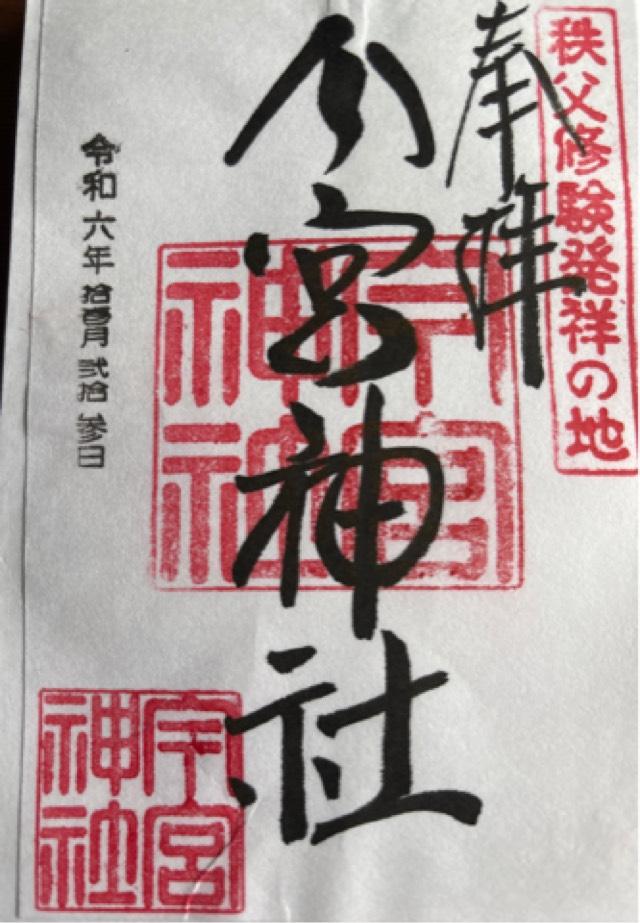 秩父修験発祥の地
奉拝
今宮神社
今宮神社
令和六年拾壱月弐拾参日
今宮神社